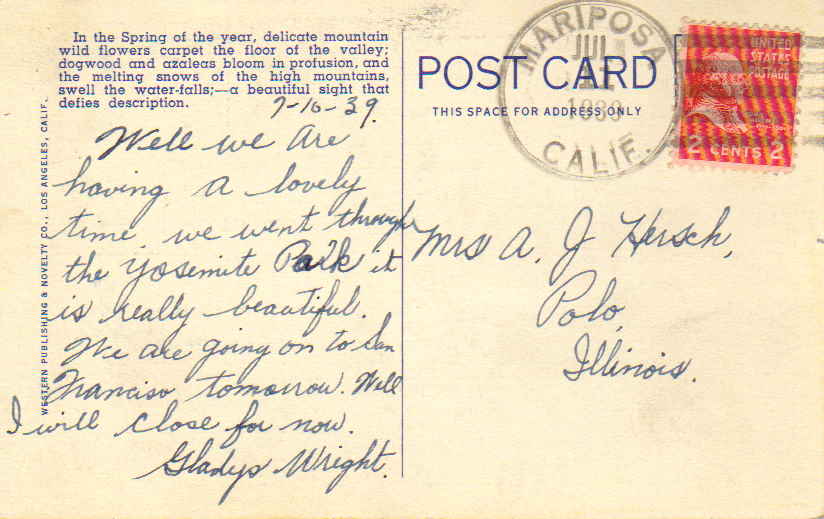 In the Spring of the year, delicate mountain
wild flowers carpet the floor of the valley;
dogwood and azaleas bloom in profusion, and
the melting snows of the high mountains,
swell the water-falls;—a beautiful sight that
defies description.
7-10-39.
Well we are
having a lovely
time. we went through
the Yosemite Park it
is really beautiful.
We are going on to San
Francisco tomorrow. Well
I will close for now.
Gladys Wright.
WESTERN PUBLISHING & NOVELTY CO., LOS ANGELES, CALIF.
POST CARD
THIS SPACE FOR ADDRESS ONLY
MARIPOSA
JUL
11
1939
CALIF.
UNITED
STATES
POSTAGE
2 CENTS 2
Mrs A. J Hersch,
Polo,
Illinois.